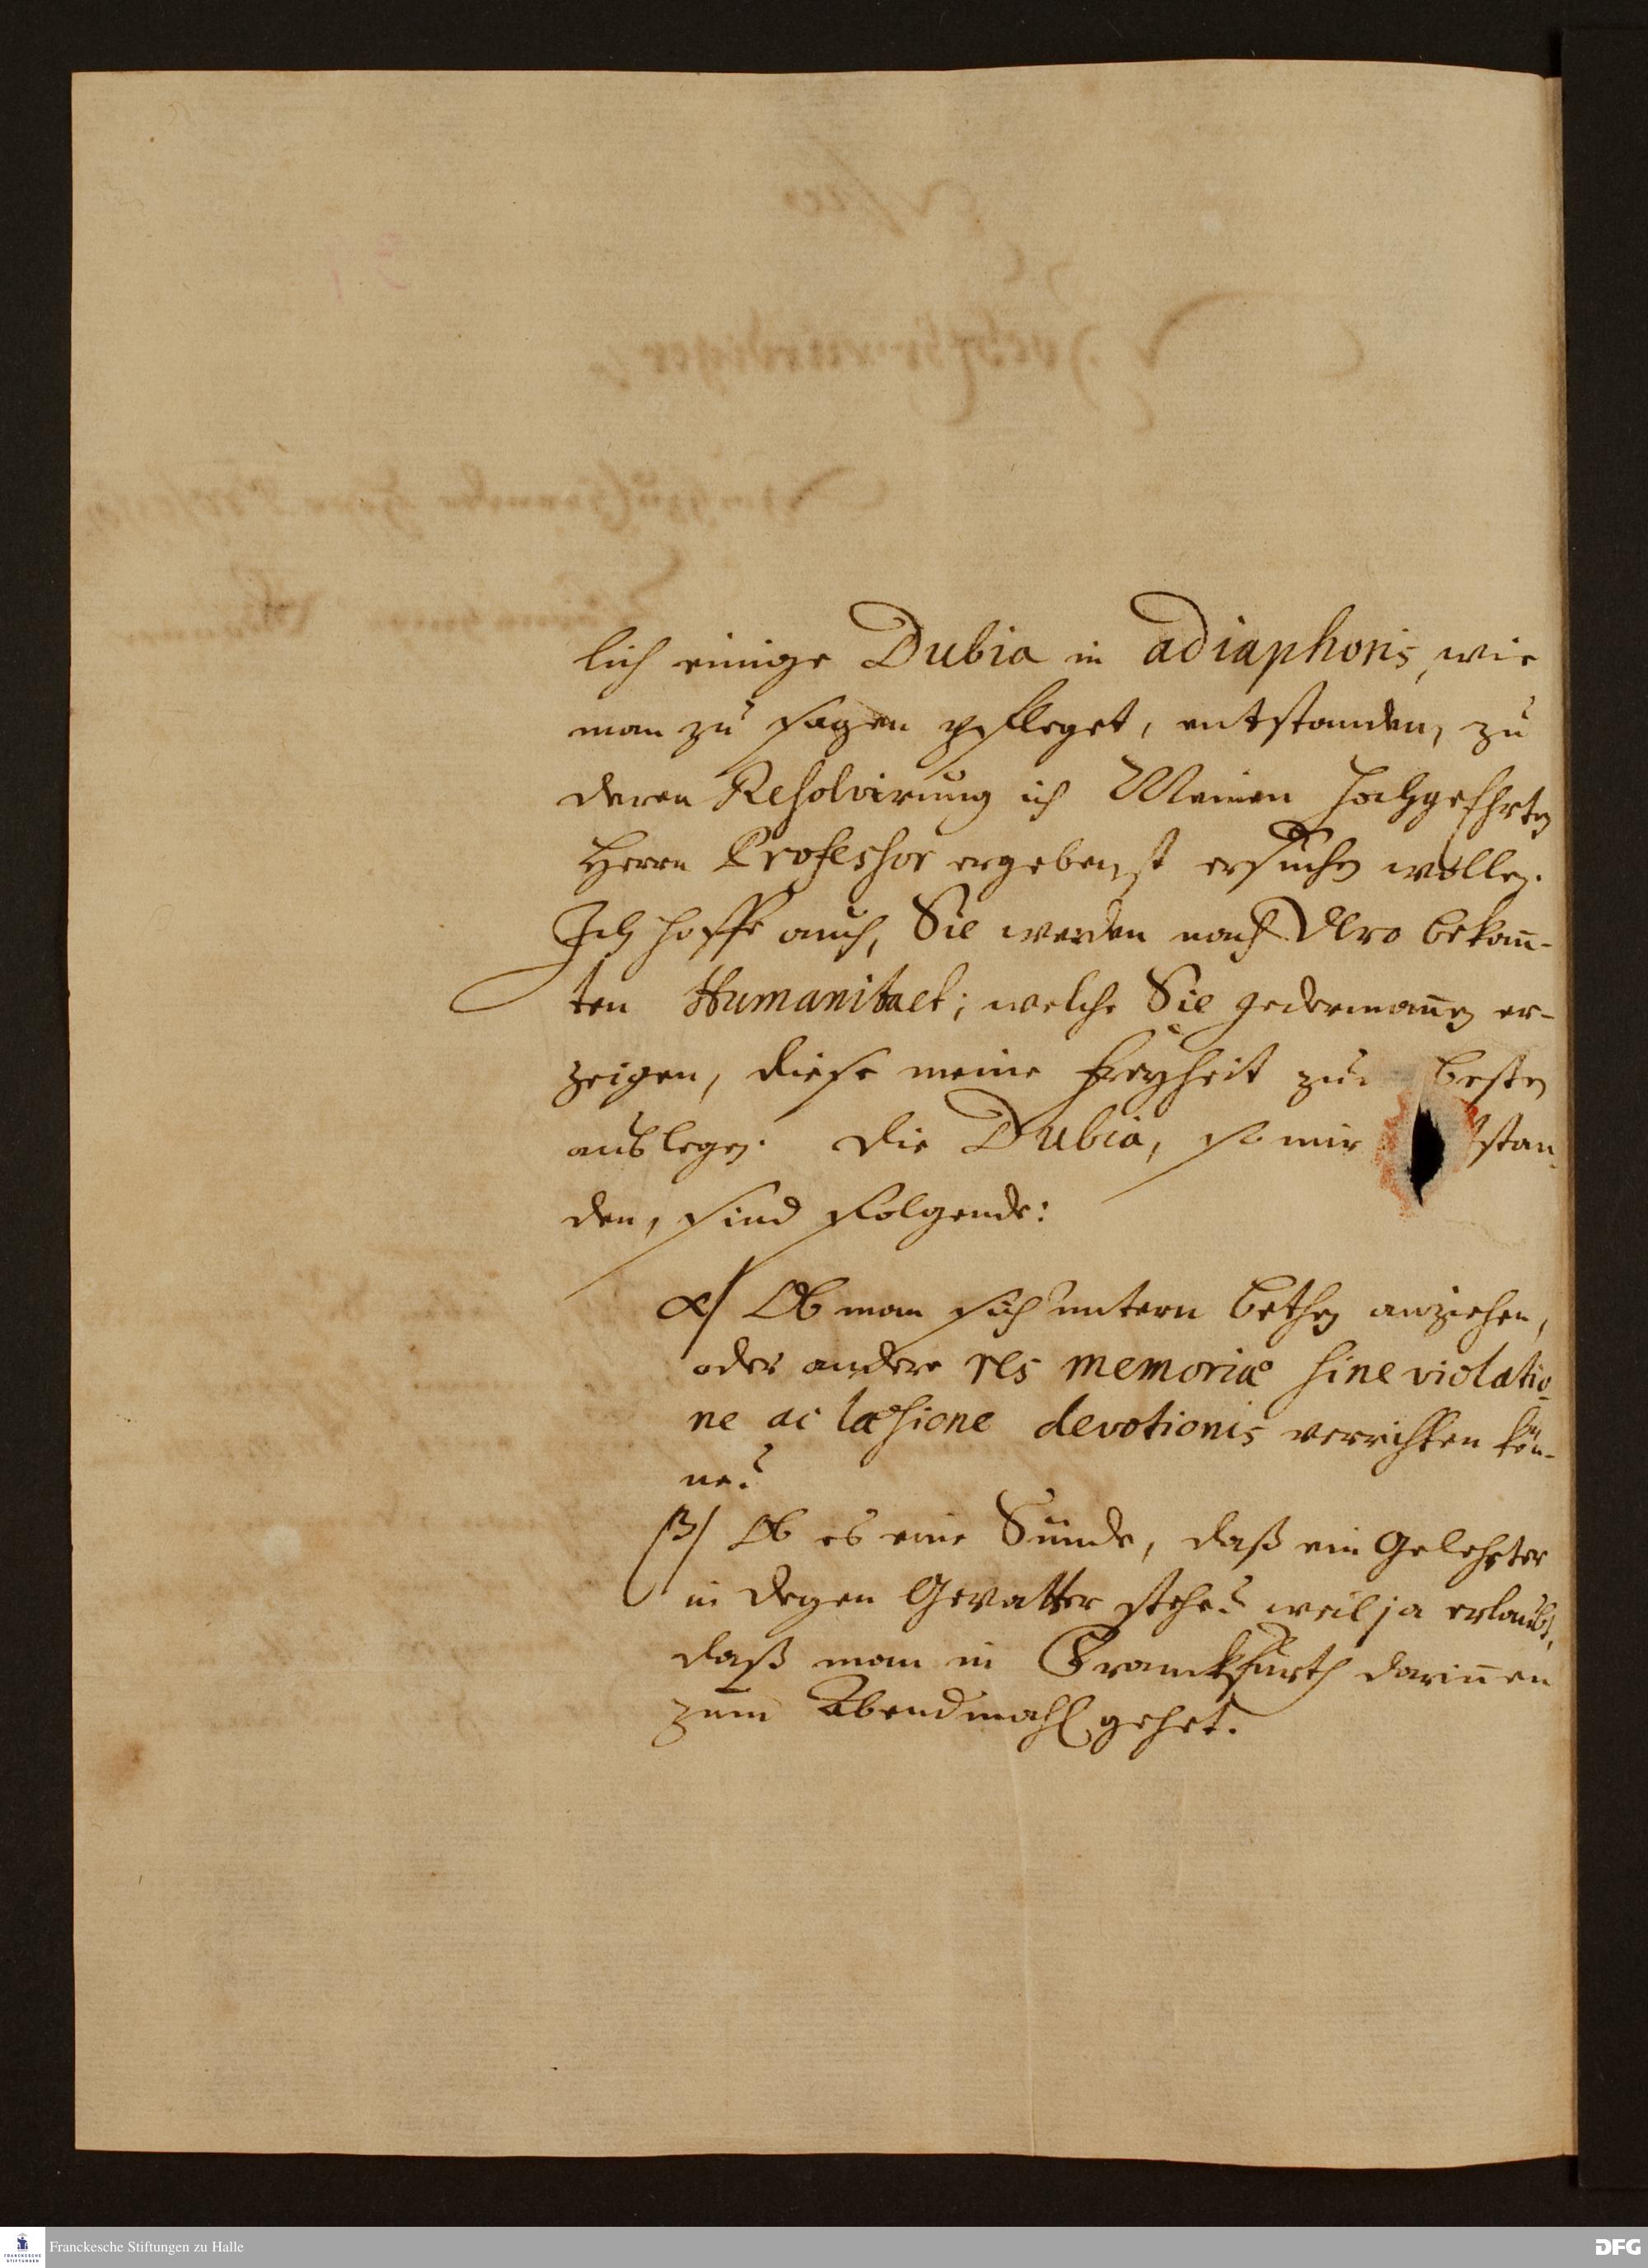 lich einige Dubia in adiaphoris, wie
man zu sagen pfleget, entstanden, zu
deren Resolvirung ich Meinen hochgeehrten
Herrn Professor ergebenst ersuchen wollen.
Ich hoffe auch, Sie werden nach Dero bekañ-
ten Humanitaet; welche Sie jedermañen er-
zeigen, diese meine Freyheit zum besten
auslegen. Die Dubia, so mir stan-
den, sind folgende:
α) Ob man sich untern bethen anziehen,
oder andere res memoriæ sine violatio-
ne ac læsione devotionis verrichten kön-
ne?
β) Ob es eine Sünde, daß ein Gelehrter
in Degen Gevatter stehe? weil ja erlaubt,
daß man in Franckfurth dariñen
zum Abendmahl gehet.
Franckesche Stiftungen zu Halle
DFG